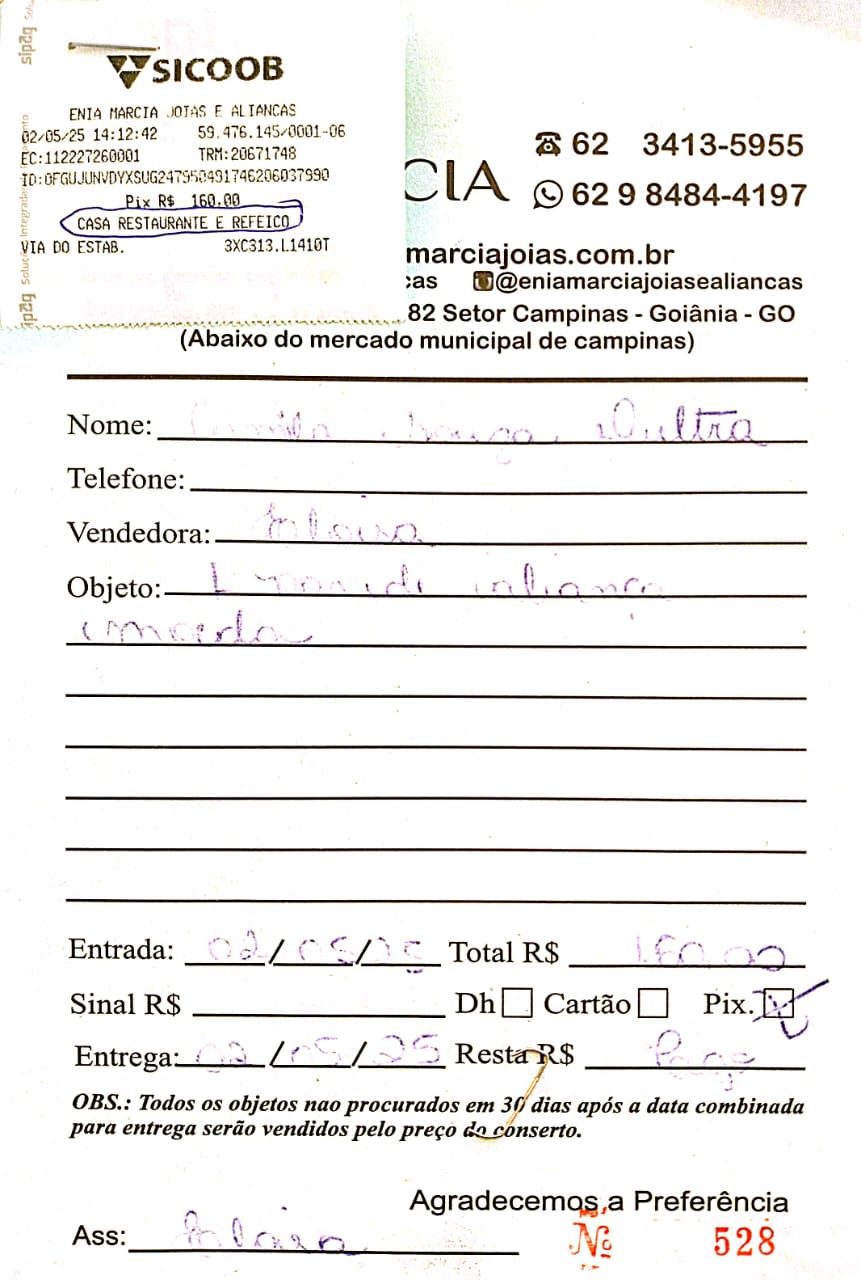 SICOOB
ENIA MARCIA JOIAS E ALIANCAS
02/05/25 14:12:42 59.476.145/0001-06
EC:112227260001 TRM:20671748
ID:0FGUJUNVDYXSUG247950491746206037990
Pix R$ 160.00
CASA RESTAURANTE E REFEICO
VIA DO ESTAB. 3XC313.L1410T
sipag
sipag
CIA
62 3413-5955
62 9 8484-4197
marciajoias.com.br
cas @eniamarciajoiasealiancas
82 Setor Campinas - Goiânia - GO
(Abaixo do mercado municipal de campinas)
Nome: Camila Souza Dultra
Telefone:
Vendedora:
Objeto: 1 par de aliança
moeda
Entrada: 02/05/25 Total R$ 160,00
Sinal R$ Dh Cartão Pix. X
Entrega: 02/05/25 Resta R$ Pago
OBS.: Todos os objetos nao procurados em 30 dias após a data combinada
para entrega serão vendidos pelo preço do conserto.
Agradecemos a Preferência
Ass:
Nº 528